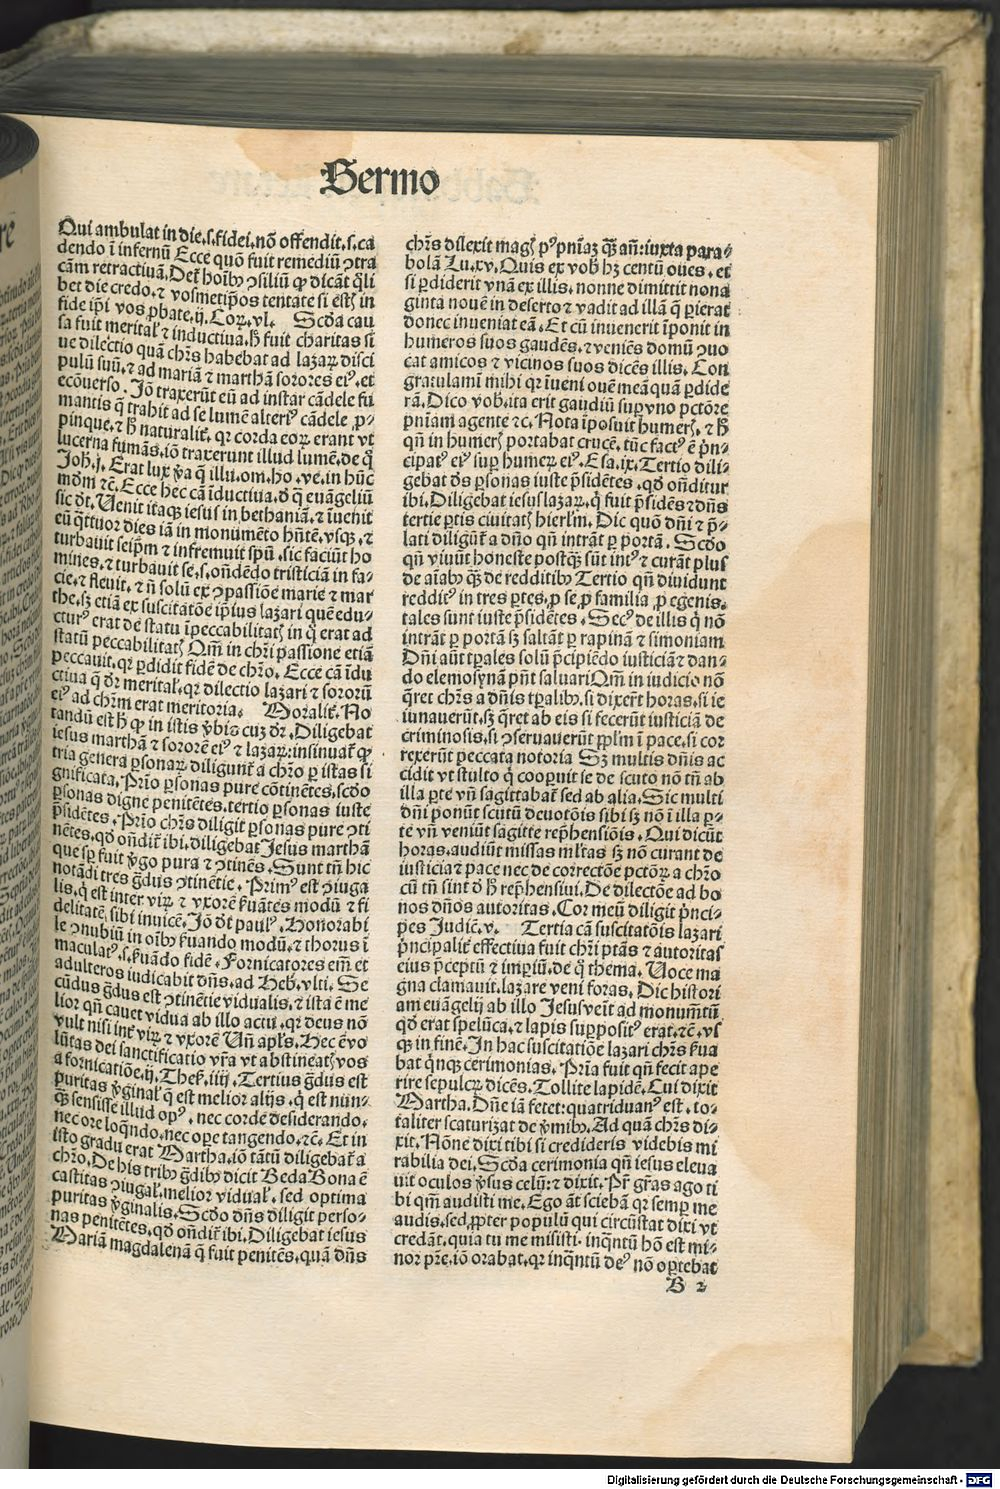 Sermo
Qui ambulat in die .s. fidei, nō offendit .s. ca
dendo ī infernū Ecce quō fuit remediū ꝯtra
cām retractiuā. Det hoībꝰ ꝯsiliū ꝙ dicāt q̄li
bet die credo. ⁊ vosmetip̄os tentate si estꝭ in
fide ip̄i vos ꝓbate. ij. Coꝝ. vl. Scd̓a cau
sa fuit merital̓ ⁊ inductiua. h̄ fuit charitas si
ue dilectio quā chr̄s habebat ad lazaꝝ disci
pulū suū. ⁊ ad mariā ⁊ marthā sorores eiꝰ. et
ecōuerso. Jō traxerūt eū ad instar cādele fu
mantis q̄ trahit ad se lumē alteriꝰ cādele ꝓ-
pinque. ⁊ h̄ naturalit̄. qr corda eoꝝ erant vt
lucerna fumās. iō traxerunt illud lumē. de q̄
Joh̄. j. Erat lux v̄a q̄ illu. om. ho. ve. in hūc
mōm ⁊c. Ecce hec cā īductiua. d̓ q̄ euāgeliū
sic dt̄. Uenit itaqꝫ iesus in bethaniā. ⁊ īuenit
eū q̄ttuor dies iā in monumēto hn̄te. vsqꝫ. ⁊
turbauit seip̄m ⁊ infremuit sp̄u. sic faciūt ho
mines. ⁊ turbauit se .s. oñdēdo tristiciā in fa-
cie. ⁊ fleuit. ⁊ ñ solū ex ꝯpassiōe marie ⁊ mar
the. sꝫ etiā ex suscitatōe ip̄ius lazari quē edu-
cturꝰ erat de statu īpeccabilitatꝭ in q̄ erat ad
statū peccabilitatꝭ Qm̄ in chr̄i passione etiā
peccauit. qr ꝑdidit fidē de chr̄o. Ecce cā īdu
ctiua q̄ dr̄ merital̓. qr dilectio lazari ⁊ sororū
eiꝰ ad chr̄m erat meritoria. Moralit̄. No
tandū est h̄ ꝙ in istis v̄bis cuꝫ dr̄. Diligebat
iesus marthā ⁊ sororē eiꝰ ⁊ lazaꝝ: insinuat̄ ꝙ
tria genera ꝑsonaꝝ diligunt̄ a chr̄o ꝑ istas si
gnificata. Prīo ꝑsonas pure cōtinētes. scd̓o
ꝑsonas digne penitētes. tertio ꝑsonas iuste
p̄sidētes. Prīo chr̄s diligit ꝑsonas pure ꝯti
nētes. qd̓ oñdit̄ ibi. diligebat Jesus marthā
que sꝑ fuit v̄go pura ⁊ ꝯtinēs. Sunt tñ hic
notādi tres ḡdus ꝯtinētie. Primꝰ est ꝯiuga
lis. q̄ est inter viꝝ ⁊ vxorē ẜuātes modū ⁊ fi
delitatē, sibi inuicē. Jō dt̄ paulꝰ. Honorabi
le ꝯnubiū in oībꝰ ẜuando modū. ⁊ thorus ī
maculatꝰ .s. ẜuādo fidē. Fornicatores em̄ et
adulteros iudicabit dñs. ad Heb. vlti. Se
cūdus ḡdus est ꝯtinētie vidualis. ⁊ ista ē me
lior qñ cauet vidua ab illo actu. qr deus nō
vult nisi int̄ viꝝ ⁊ vxorē Uñ apl̄s. Hec ē vo
lūtas dei sanctificatio vr̄a vt abstineatꝭ vos
a fornicatiōe. ij. Thes̄. iiij. Tertius ḡdus est
puritas v̄ginal̓ q̄ est melior alijs. q̄ est nun-
qꝫ sensisse illud opꝰ. nec corde desiderando.
nec ore loq̄ndo. nec oꝑe tangendo. ⁊c. Et in
isto gradu erat Martha. iō tātū diligebat̄ a
chr̄o. De his tribꝰ ḡdibꝰ dicit Beda Bona ē
castitas ꝯiugal̓. melior vidual̓. sed optima
puritas v̄ginalis. Scd̓o dñs diligit perso-
nas penitētes. qd̓ oñdit̄ ibi. Diligebat iesus
Mariā magdalenā q̄ fuit penitēs. quā dñs
chr̄s dilexit magꝭ pꝰ pn̄iaꝫ qꝫ añ: iuxta para-
bolā Lu. xv. Quis ex vob̓ hꝫ centū oues. et
si ꝑdiderit vnā ex illis. nonne dimittit nona
ginta nouē in deserto ⁊ vadit ad illā q̄ ꝑierat
donec inueniat eā. Et cū inuenerit īponit in
humeros suos gaudēs. ⁊ veniēs domū ꝯuo
cat amicos ⁊ vicinos suos dicēs illis. Con
gratulamī mihi qr īueni ouē meā quā ꝑdide
rā. Dico vob̓. ita erit gaudiū suꝑ vno pctōre
pn̄iam agente ⁊c. Nota īposuit humerꝭ. ⁊ h̄
qñ in humerꝭ portabat crucē. tūc factꝰ ē p̄n-
cipatꝰ eiꝰ suꝑ humeꝝ eiꝰ. Esa. ix. Tertio dili-
gebat dñs ꝑsonas iuste p̄sidētes. qd̓ oñditur
ibi. Diligebat iesus lazaꝝ. q̄ fuit p̄sidēs ⁊ dñs
tertie ꝑtis ciuitatꝭ hierl̄m. Dic quō dñi ⁊ p̄-
lati diligūt̄ a dño qñ intrāt ꝑ portā. Scd̓o
qñ viuūt honeste postqꝫ sūt intꝰ ⁊ curāt plus
de aīabꝰ qꝫ de redditibꝰ Tertio qñ diuidunt
redditꝰ in tres ꝑtes. ꝓ se ꝓ familia ꝓ egenis.
tales sunt iuste p̄sidētes. Secꝰ de illis q̄ nō
intrāt ꝑ portā sꝫ saltāt ꝑ rapinā ⁊ simoniam
Dñi aūt tꝑales solū p̄cipiēdo iusticiā ⁊ dan-
do elemosynā pn̄t saluari Qm̄ in iudicio nō
q̄ret chr̄s a dñis tꝑalibꝰ. si dixer̄t horas. si ie
iunauerūt. sꝫ q̄ret ab eis si fecerūt iusticiā de
criminosis. si ꝯseruauerūt ppl̄m ī pace. si cor
rexerūt peccata notoria Sꝫ multis dñis ac
cidit vt stulto q̄ cooꝑuit se de scuto nō tñ ab
illa ꝑte vñ sagittabat̄ sed ab alia. Sic multi
dñi ponūt scutū deuotōis sibi sꝫ nō ī illa ꝑ-
te vñ veniūt sagitte rep̄hensiōis. Qui dicūt
horas. audiūt missas ml̄tas sꝫ nō curant de
iusticia ⁊ pace nec de correctōe pctōꝝ a chr̄o
cū tñ sint d̓ h̄ rep̄hensiui. De dilectōe ad bo
nos dños autoritas. Cor meū diligit p̄nci-
pes Judic̄. v. Tertia cā suscitatōis lazari
p̄ncipalit̄ effectiua fuit chr̄i ptās ⁊ autoritas
eius p̄ceptū ⁊ imꝑiū. de q̄ thema. Uoce ma
gna clamauit. lazare veni foras. Dic histori
am euāgelij ab illo Jesus veīt ad monumtū
qd̓ erat spelūca. ⁊ lapis suꝑpositꝰ erat. ⁊c. vs
qꝫ in finē. In hac suscitatiōe lazari chr̄s ẜua
bat q̄nqꝫ cerimonias. Pr̄ia fuit qñ fecit ape
rire sepulcꝝ dicēs. Tollite lapidē. Cui dixit
Martha. Dñe iā fetet: quatriduanꝰ est. to-
taliter scaturizat de v̄mibꝰ. Ad quā chr̄s di-
xit. Nōne dixi tibi si credideris videbis mi
rabilia dei. Scd̓a cerimonia qñ iesus eleua
uit oculos v̄sus celū: ⁊ dixit. Pr̄ gr̄as ago ti
bi qm̄ audisti me. Ego āt sciebā qr semꝑ me
audis. sed ꝓpter populū qui circūstat dixi vt
credāt. quia tu me misisti. inq̄ntū hō est mi-
nor pr̄e. iō orabat. qr inq̄ntū deꝰ nō oꝑtebat
B 2
Digitalisierung gefördert durch die Deutsche Forschungsgemeinschaft - DFG